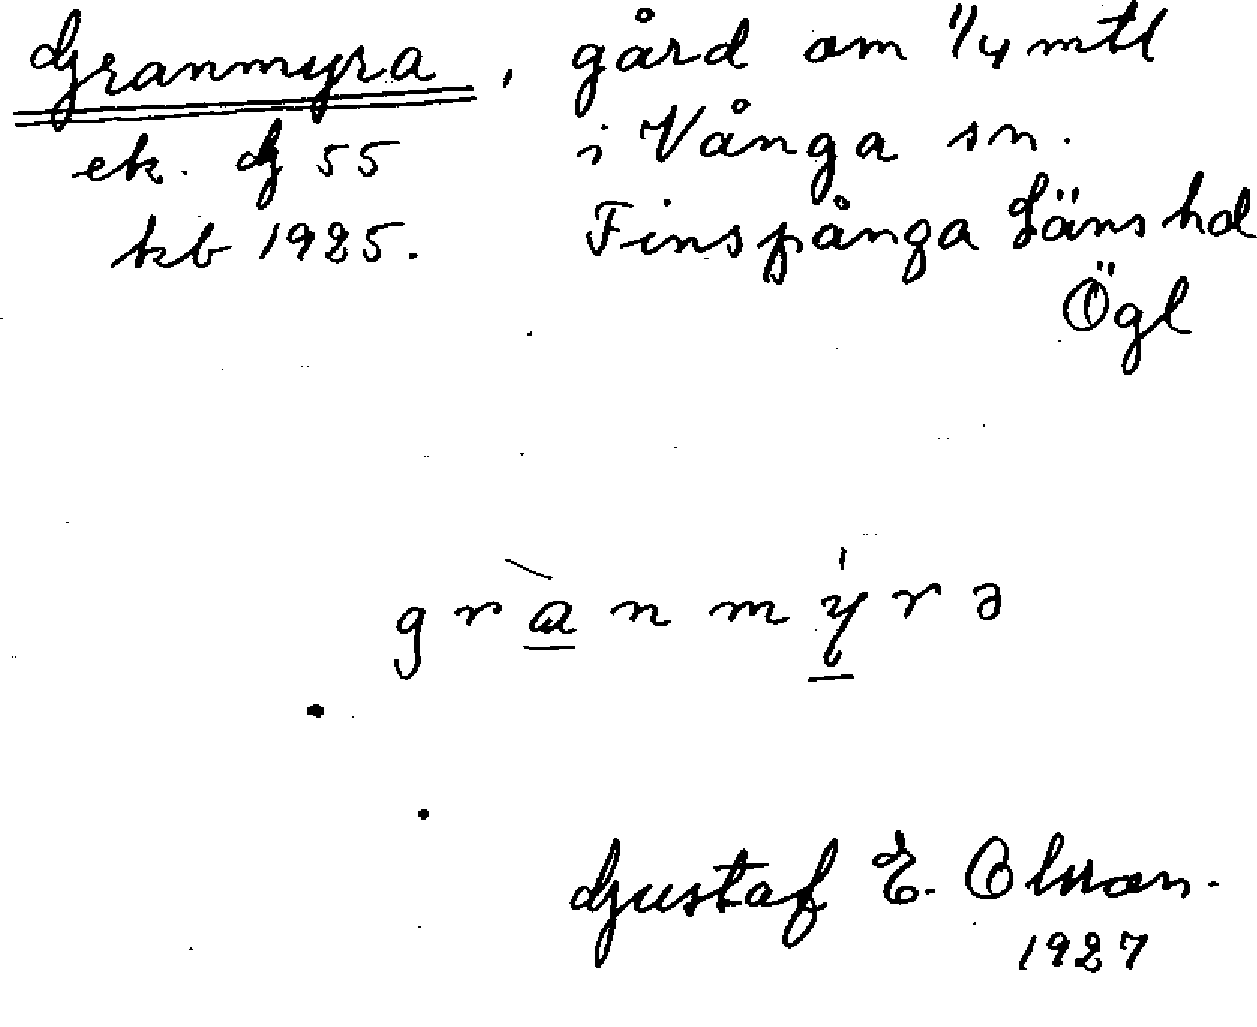 Granmyra, gård om 1/4 mtl
ek. G 55 i Vånga sn.
kb 1925. Finspånga Läns hd
Ögl
grànmýrə
Gustaf E. Olsson.
1927